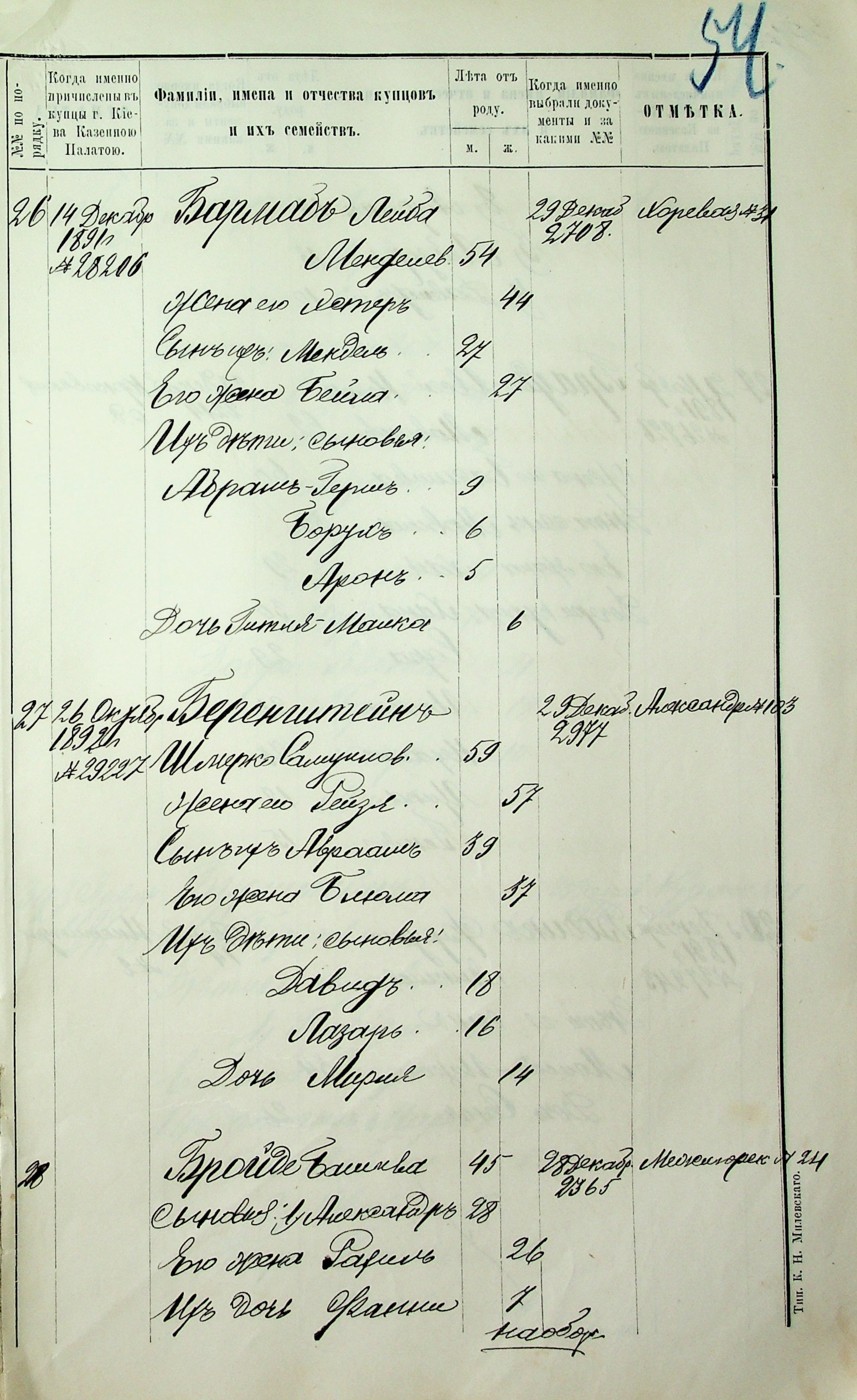 54.
№№ по порядку.
Когда именно причислены въ купцы г. Кіева Казенною Палатою.
Фамиліи, имена и отчества купцовъ и ихъ семействъ.
Лѣта отъ роду.
м.
ж.
Когда именно выбрали документы и за какими №№
ОТМѢТКА.
26 14 Декабр Бармашъ Лейба 29 Декаб Хоревая № 31
1891 г 2708.
№ 28206 Менделев. 54
Жена его Эстеръ 44
Сынъ ихъ: Мендель 27
Его жена Бейла. 27
Ихъ дѣти: сыновья:
Абрамъ-Герш 9
Борухъ 6
Аронъ 5
Дочь Гитля-Малка 6
27 26 Октябр Беренштейнъ 29 Декаб. Александр № 103
1892 г 2977
№ 29227 Шмерко Самуилов. 59
Жена его Рейзя 57
Сынъ ихъ Абраамъ 39
Его жена Блюма 37
Ихъ дѣти: сыновья:
Давидъ 18
Лазарь 16
Дочь Мирия 14
28 Бройде Башева 45 28 Декабр. Межигорск № 24
2365
Сыновья: 1) Александръ 28
Его жена Рахиль 26
Ихъ дочь Фанни 7
на обор
Тип. К. Н. Милевскаго.